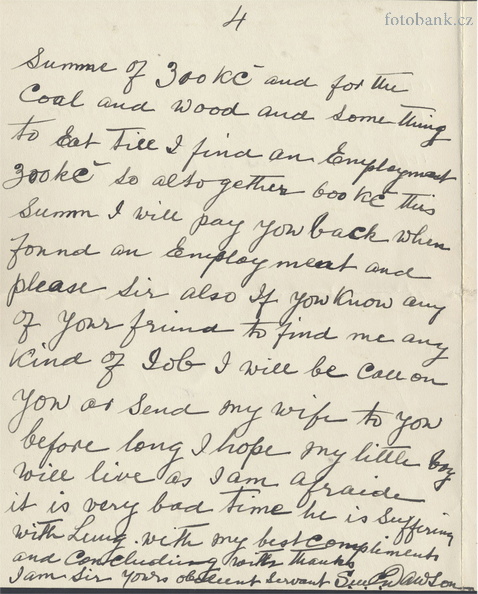 4
fotobank.cz
Summe of 300 Kč and for the
Coal and wood and something
to Eat Till I find an Employment
300 kč so altogether 600 Kč this
Summ I will pay you back when
fonnd an Employment and
please Sir also If you Know any
of Your friend to find me any
Kind of Job I will be Call on
You or Send my wife to you
before long I hope my little boy
will live as I am afraide
it is very bad time he is Suffering
with Lung. with my best Compliments
and Concluding with thanks
I am Sir yours obedient servant Dawson